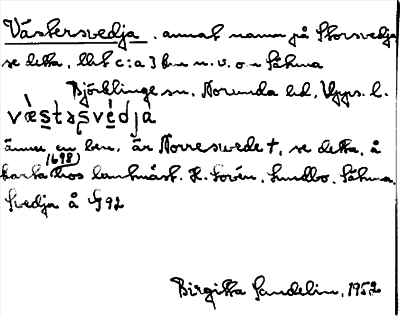 Västersvedja. annat namn på Storsvedja
se detta, lht c:a 3 km n. v. o. Låhma
Björklinge sn, Norunda hd, Upps. l.
væ̀stəʂvédjà
ännu en ben. är Norreswede †, se detta, å
karta (1698) hos lantmät. H. Lovén, Lundbo, Låhma.
Svedja å G 92
Birgitta Sandelin, 1952